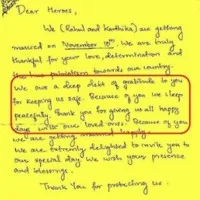 Dear Heroes,
We (Rahul and Karthika) are getting
married on November 10th. We are truly
thankful for your love, determination and
patriotism towards our country.
We owe a deep debt of gratitude to you
for keeping us safe. Because of you we sleep
peacefully. Thank you for giving us all happy
days with our loved ones. Because of you
we are getting married happily.
We are extremely delighted to invite you to
our special day. We wish your presence
and blessings.
Thank You for protecting us.